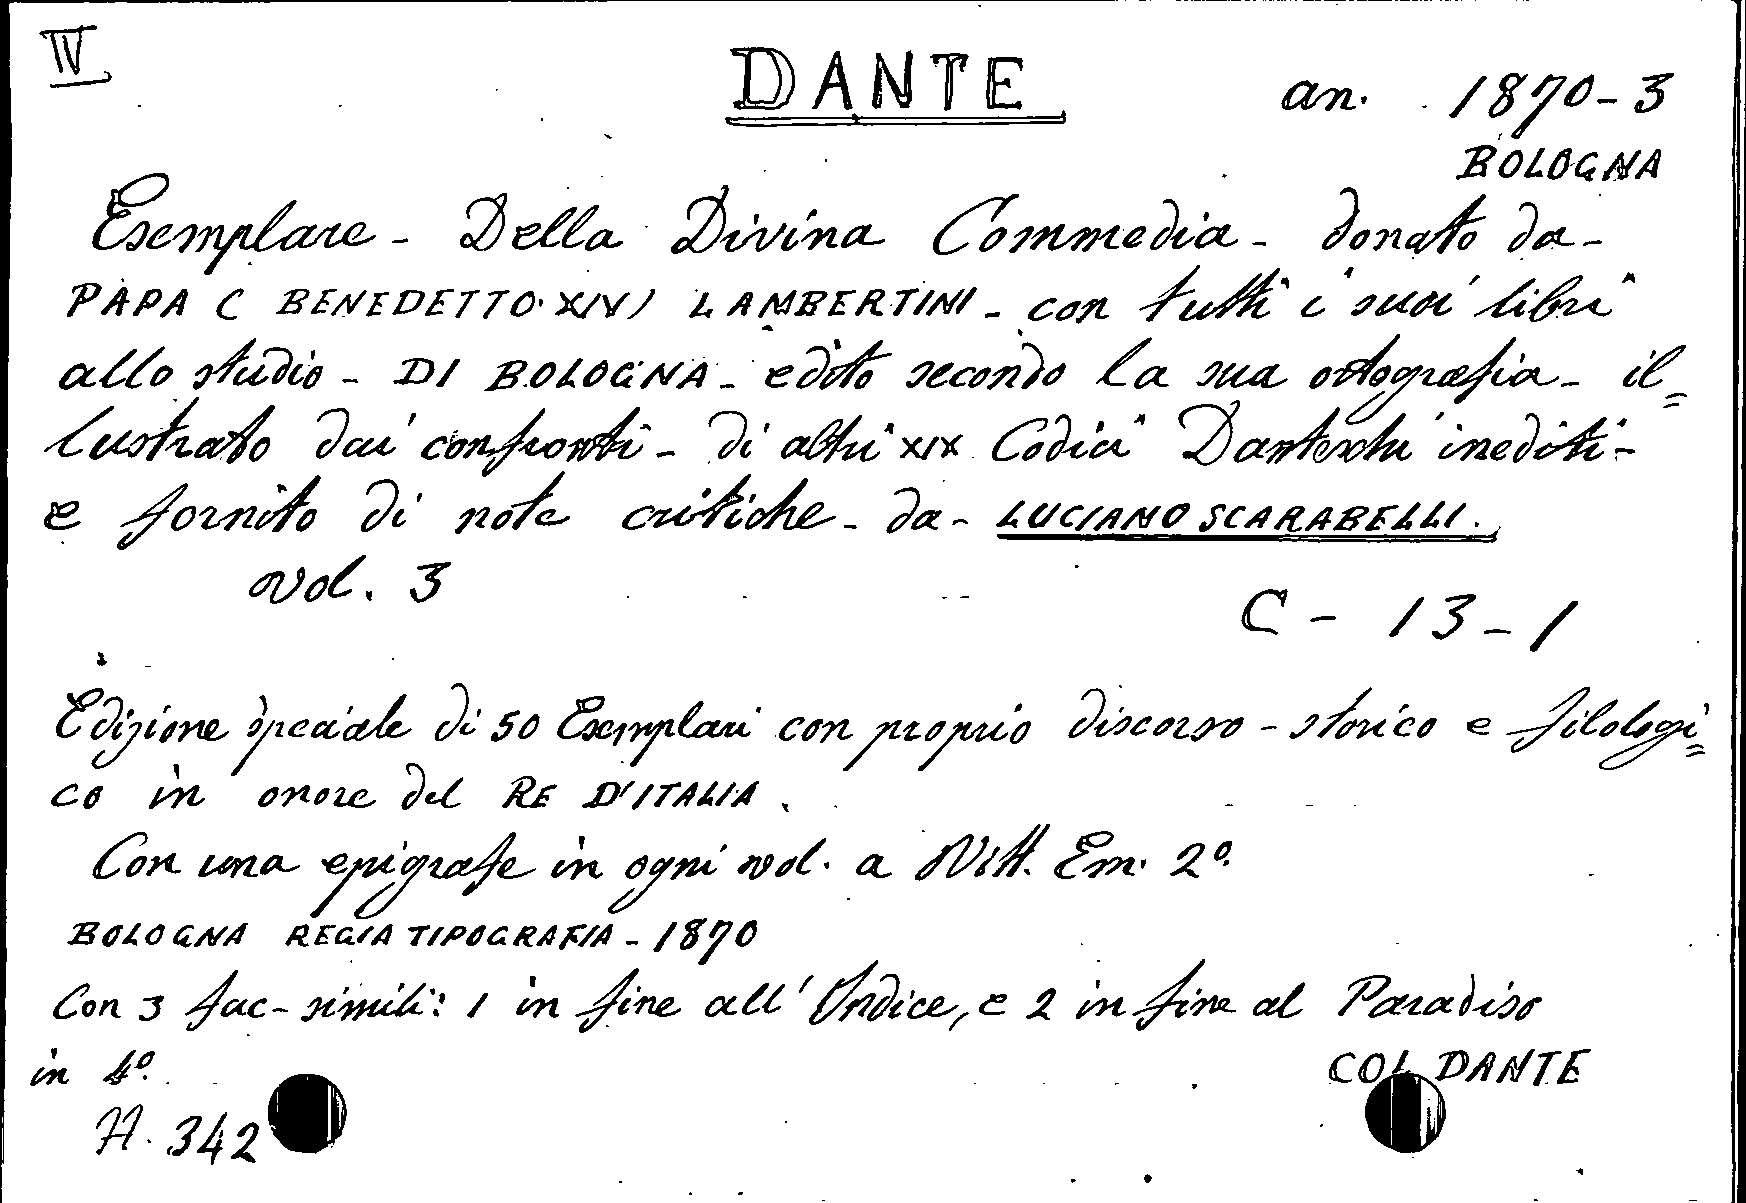 IV
DANTE
an. 1870-3
BOLOGNA
Esemplare - Della Divina Commedia - donato da -
PAPA ( BENEDETTO XIV) LAMBERTINI - con tutti i suoi libri
allo studio - DI BOLOGNA - edito secondo la sua ortografia - il=
lustrato dai confronti - di altri XIX Codici Danteschi inediti -
e fornito di note critiche - da - LUCIANO SCARABELLI.
Vol. 3
C - 13 - 1
Edizione speciale di 50 Esemplari con proprio discorso - storico e filologi=
co in onore del RE D'ITALIA.
Con una epigrafe in ogni vol. a Vitt. Em. 2º.
BOLOGNA REGIA TIPOGRAFIA - 1870
Con 3 fac-simili: 1 in fine all'Indice, e 2 in fine al Paradiso
in 4º.
COL DANTE
H. 342